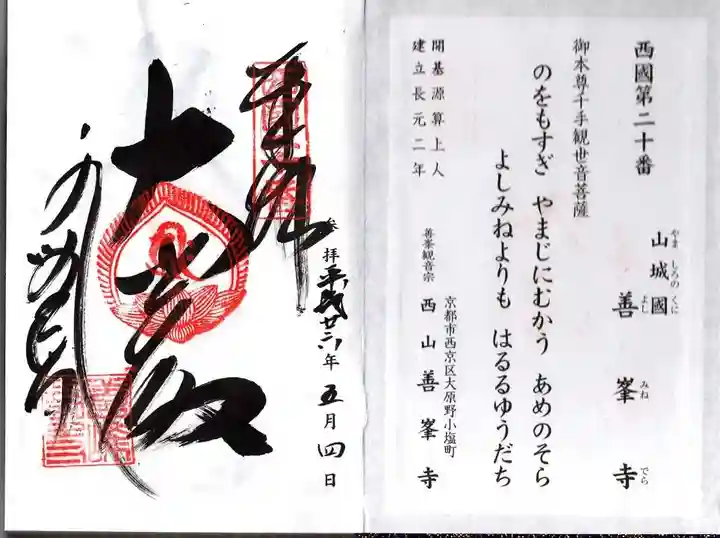 西國第二十番
やましろのくに
山城國
よしみねでら
善峯寺
御本尊千手観世音菩薩
のをもすぎ やまじにむかう あめのそら
よしみねよりも はるるゆうだち
開基源算上人
建立長元二年
京都市西京区大原野小塩町
善峯観音宗 西山善峯寺
参拝平成廿 年五月四日
奉拝
大悲殿